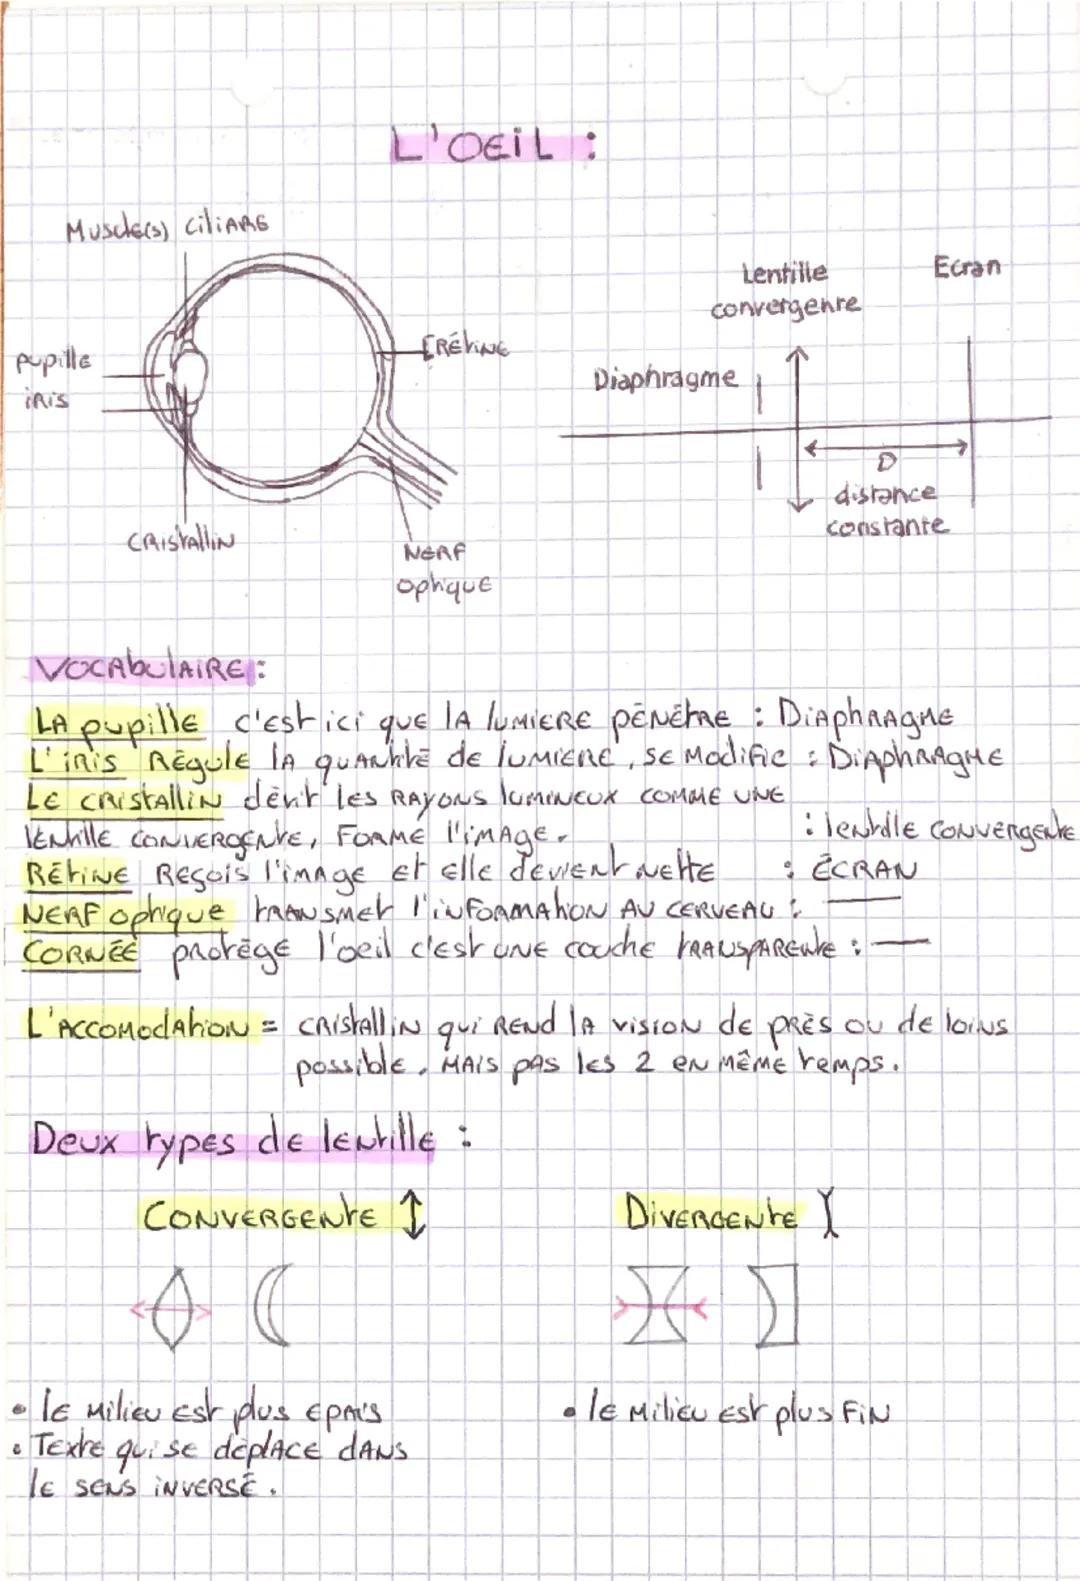 L'OEIL :
Muscle(s) CILIARE
pupille
iRis
CRistAlliN
RÉtiNE
NERF
optique
Lentille
convergente
Ecran
Diaphragme
D
distance
constante
VOCAbulAIRE :
LA pupille c'est ici que lA lumiERE pénètre : DiAphRAgME
L'iRis Régule lA quANtité de lumiERE, se Modifie : DiAphRAgME
LE CRistAlliN dévit les RAYONS lumiNEUX COMME UNE
lENtille CONVERGENtE, FORME l'iMAge. : lentille CONVERgente
RÉtiNE REçois l'iMAge et Elle devient NEttE : ÉCRAN
NERF optique tRANSMEt l'iNFORMAtiON AU CERVEAU : —
CORNÉE protège l'oeil c'est UNE couche tRANSPARENte : —
L'ACCOMOdAtiON = CRistAlliN qui REND lA visiON de pRÈs ou de loins
possible, MAis pAs les 2 EN MêME temps.
Deux types de lentille :
CONVERGENtE ↕
DiVERGENtE
• lE MiliEU Est plus EpAis
• TextE qui se déplACE dANS
lE SENS iNVERSE.
• lE MiliEU Est plus FiN